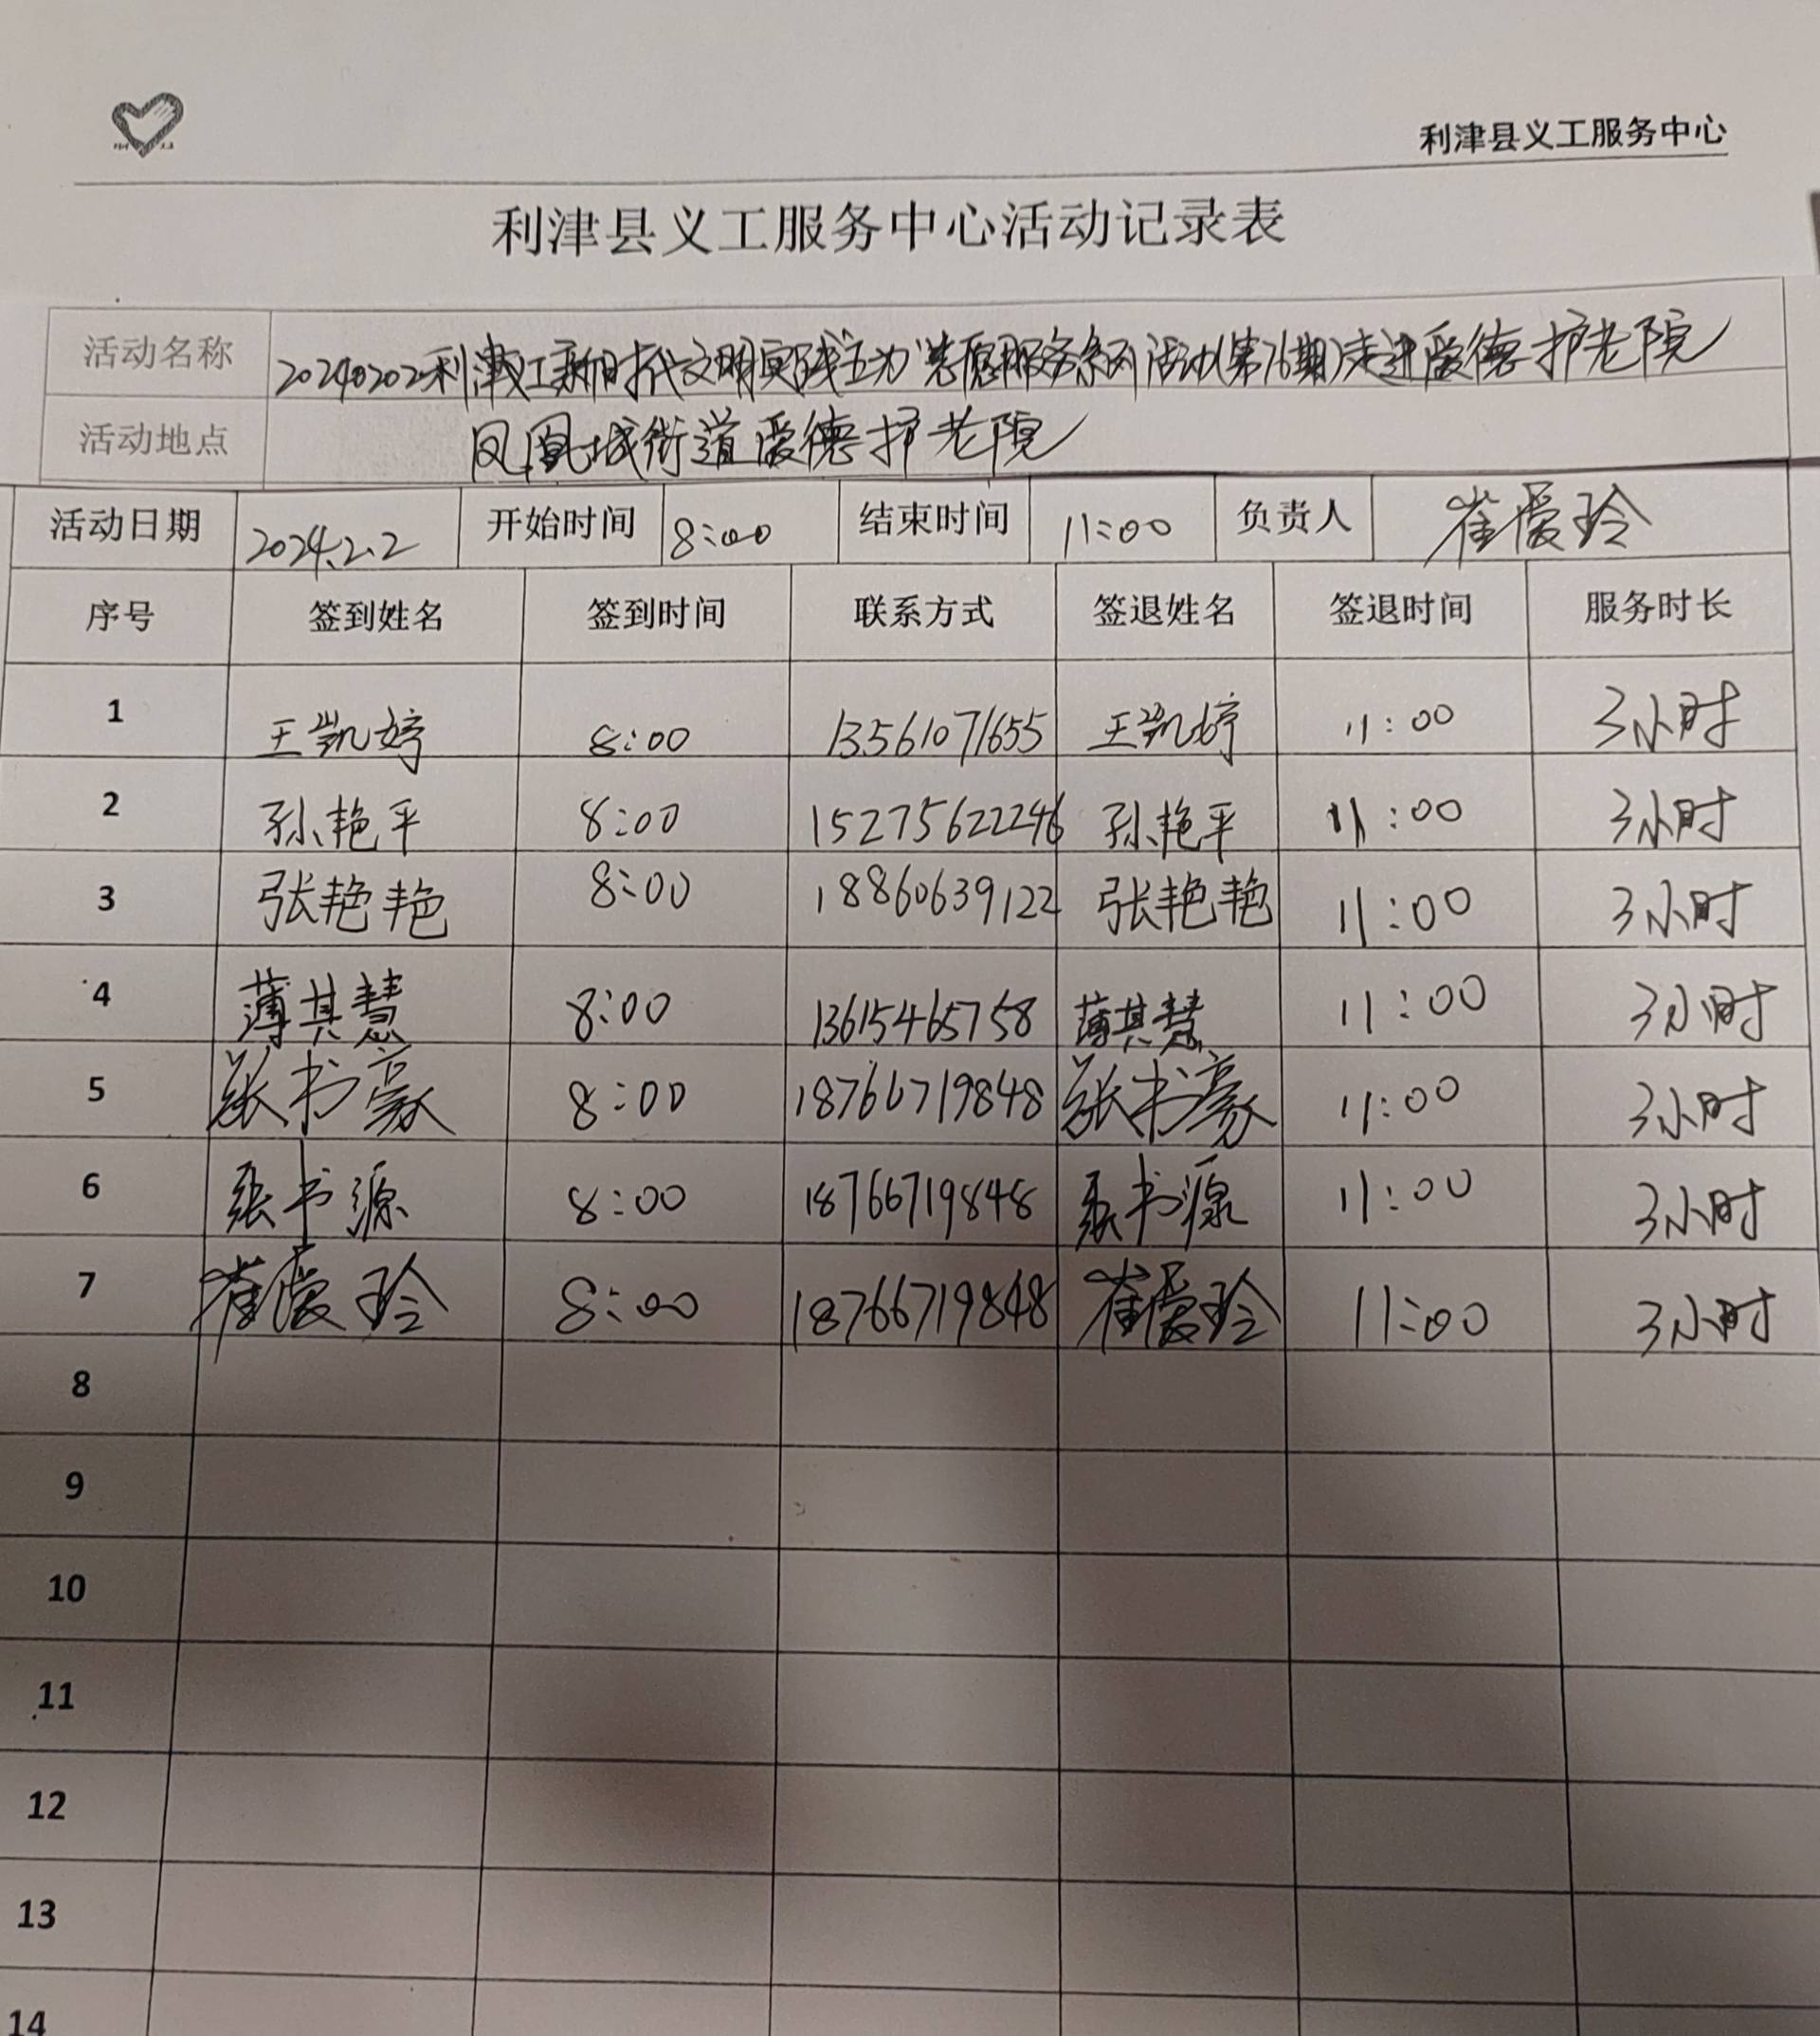 利津县义工服务中心
利津县义工服务中心活动记录表
活动名称 20240202利津义工新时代文明实践"五为"志愿服务系列活动(第76期)走进爱德护老院
活动地点 凤凰城街道爱德护老院
活动日期 2024.2.2 开始时间 8:00 结束时间 11:00 负责人 崔爱玲
序号 签到姓名 签到时间 联系方式 签退姓名 签退时间 服务时长
1 王凯婷 8:00 13561071655 王凯婷 11:00 3小时
2 孙艳平 8:00 15275622246 孙艳平 11:00 3小时
3 张艳艳 8:00 18860639122 张艳艳 11:00 3小时
4 薄其慧 8:00 13615465758 薄其慧 11:00 3小时
5 张书豪 8:00 18766719848 张书豪 11:00 3小时
6 张书源 8:00 18766719848 张书源 11:00 3小时
7 崔爱玲 8:00 18766719848 崔爱玲 11:00 3小时
8
9
10
11
12
13
14